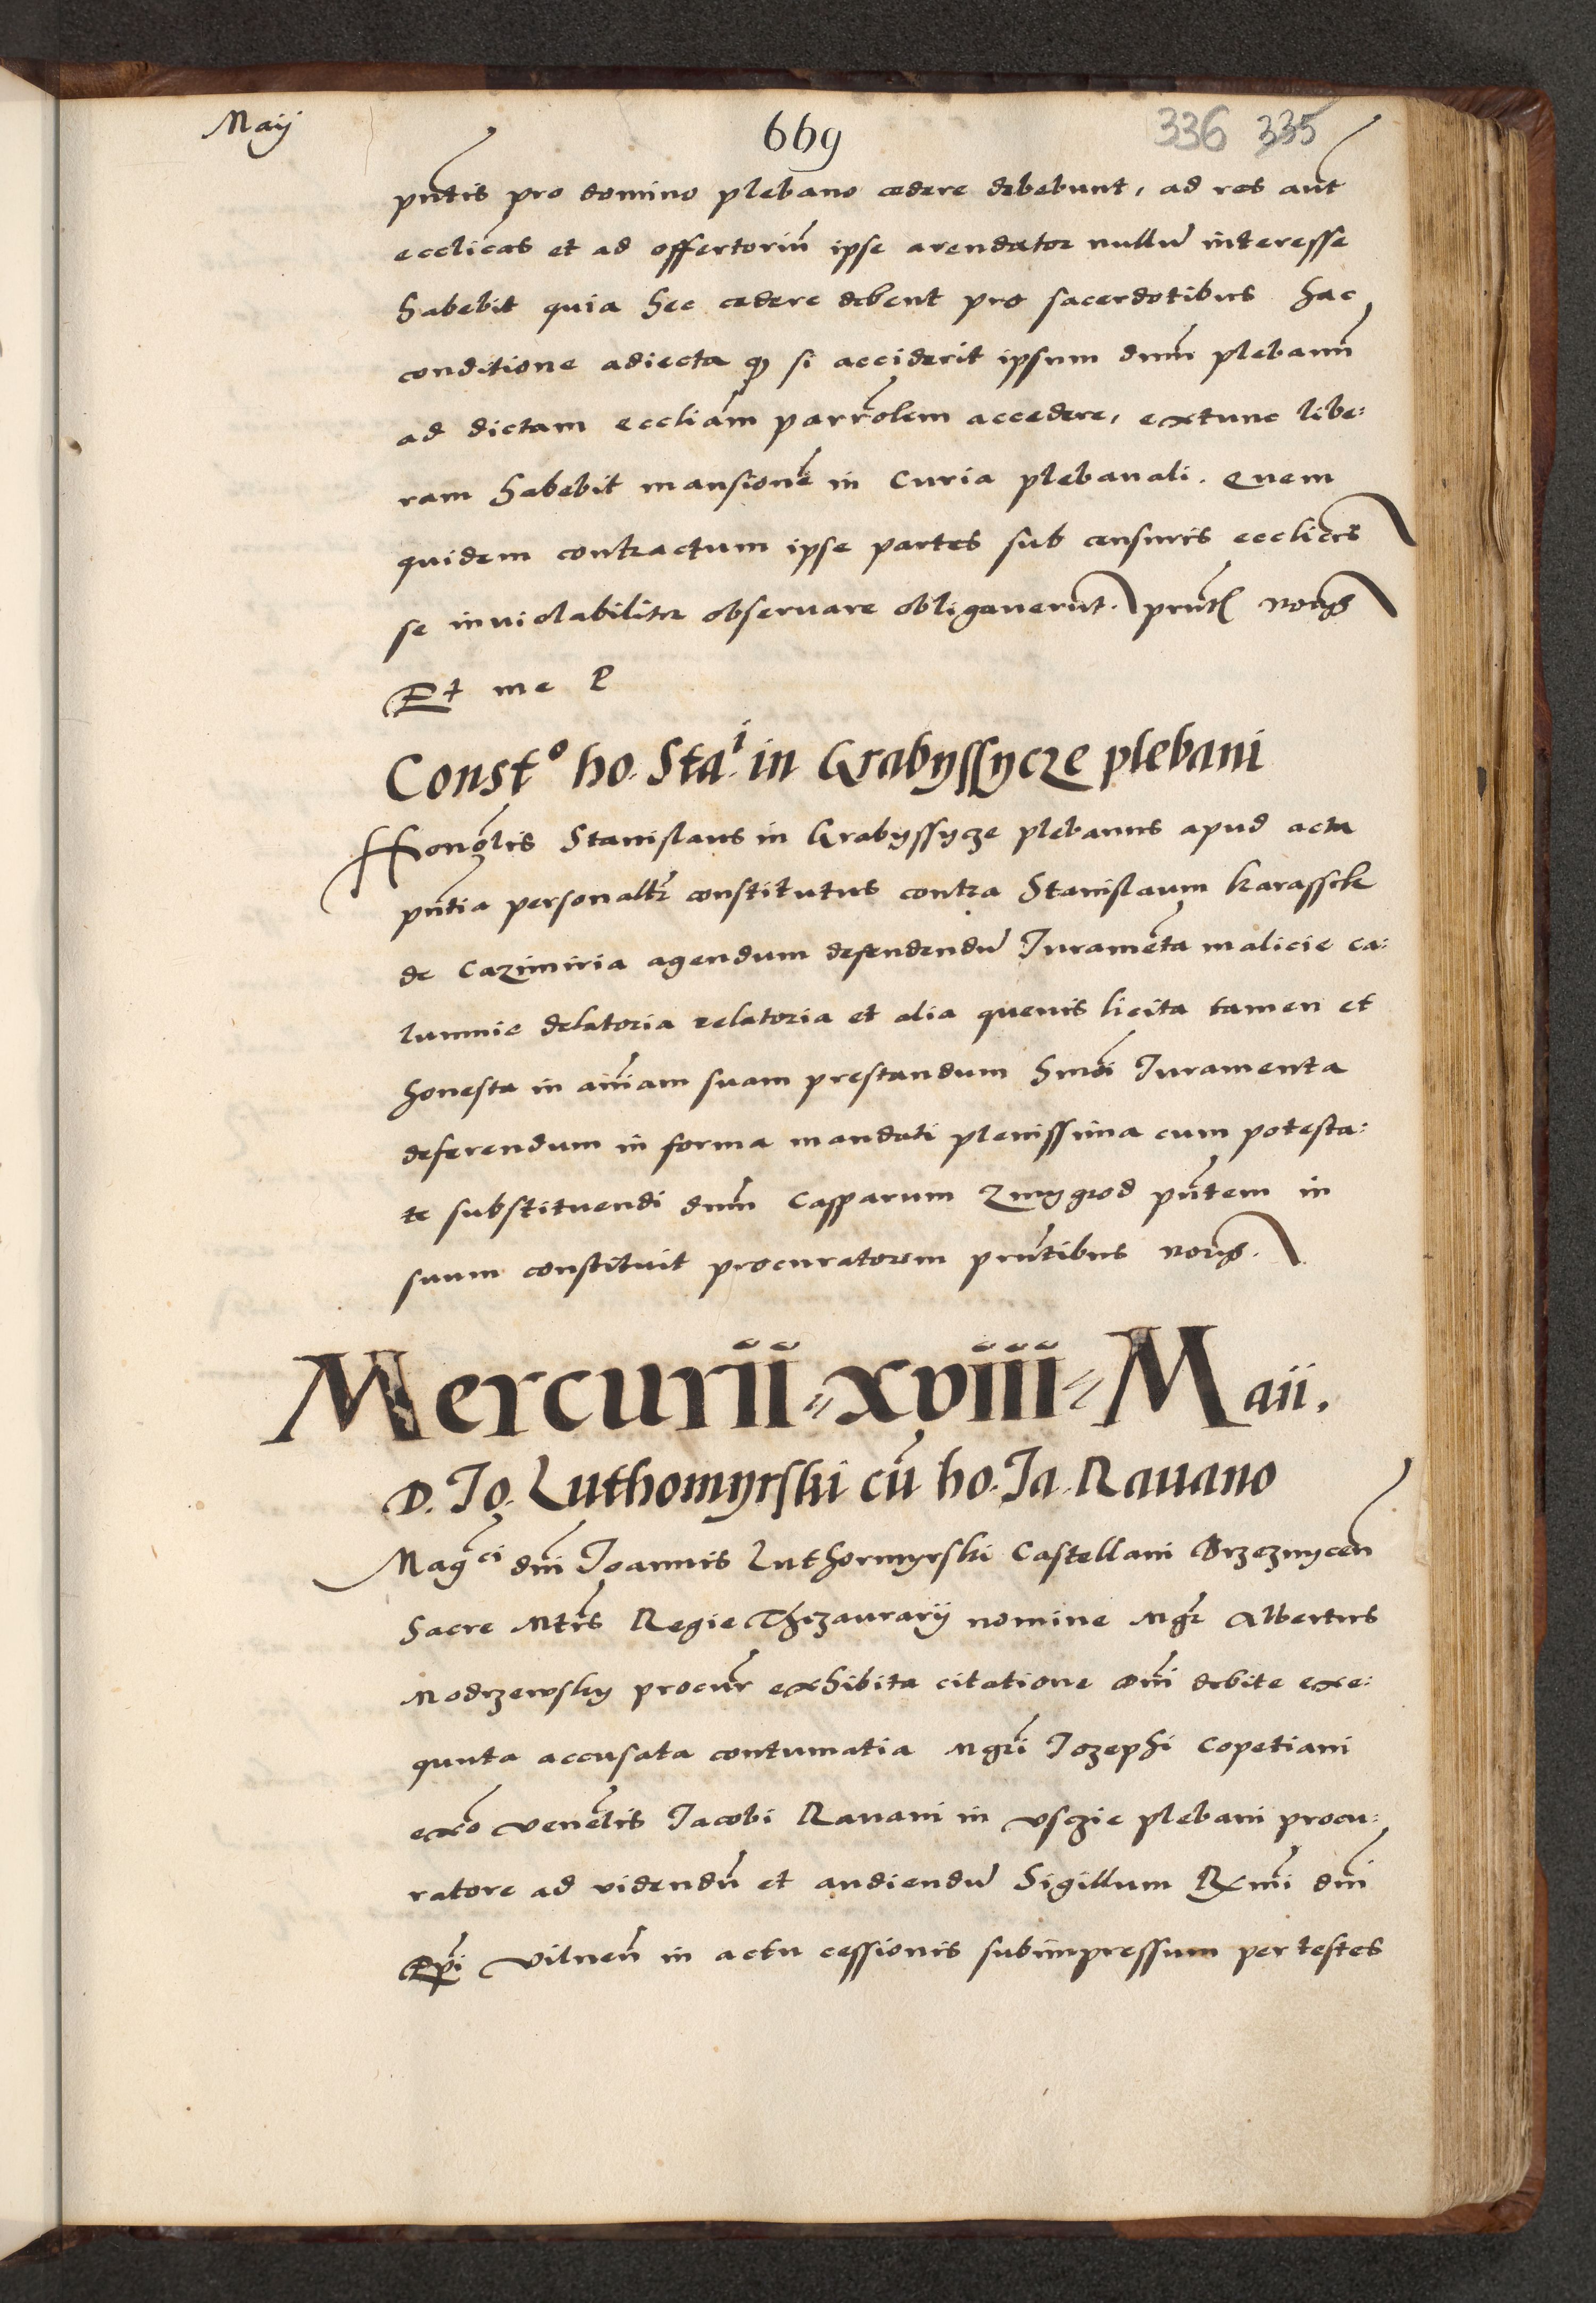 Maij
669
336 335
pn̄tis pro domino plebano cedere debebunt, ad res aūt
eccl̄icas et ad offertoriū ipse arendator nullū interesse
habebit quia hec cedere debent pro sacerdotibus hac
conditione adiecta si acciderit ipsum dn̄m plebanū
ad dictam eccliām parr̄olem accedere, extunc libe:
ram habebit mansionē in Curia plebanali. Quem
quidem contractum ipse partes sub censuris eccl̄icis
se inuiolabiliter obseruare obligauerūt.
Et me P
Const.º ho. Sta.ⁱ in Grabyssycze plebani
Hono͞lis Stanislaus in Grabyssycze plebanus apud acta
pn̄tia personalt͞r constitutus contra Stanislaum Karassek
de Cazimiria agendum defendendū Juramēta malicie ca:
lumnie delatoria relatoria et alia queuis licita tamen et
honesta in aīam suam prestandum hm̄oi Juramenta
deferendum in forma mandati plenissima cum potesta:
te substituendi dn̄m Casparum Zmygrod pn̄tem in
suum constituit procuratorem pn̄tibus
Mercurii xviii Maii.
D. Jo. Luthomyrski cū ho. Ja. Rauano
Mag.ci dn̄i Joannis Luthormyrski Castellani Brzeznycen̄
Sacre Mtīs Regie Thezaurarij nomine Mgr̄ Albertus
Modrzewsky procur̄ exhibita citatione om̄i debite exe:
quuta accusata contumatia Mgr̄i Jozephi Copetiani
ex͞o vene͞lis Jacobi Rauani in vsczie plebani procu:
ratore ad videndū et audiendū Sigillum Rx̄mi dn̄i
Ep̄i vilnen̄ in actu cessionis subimpressum per testes